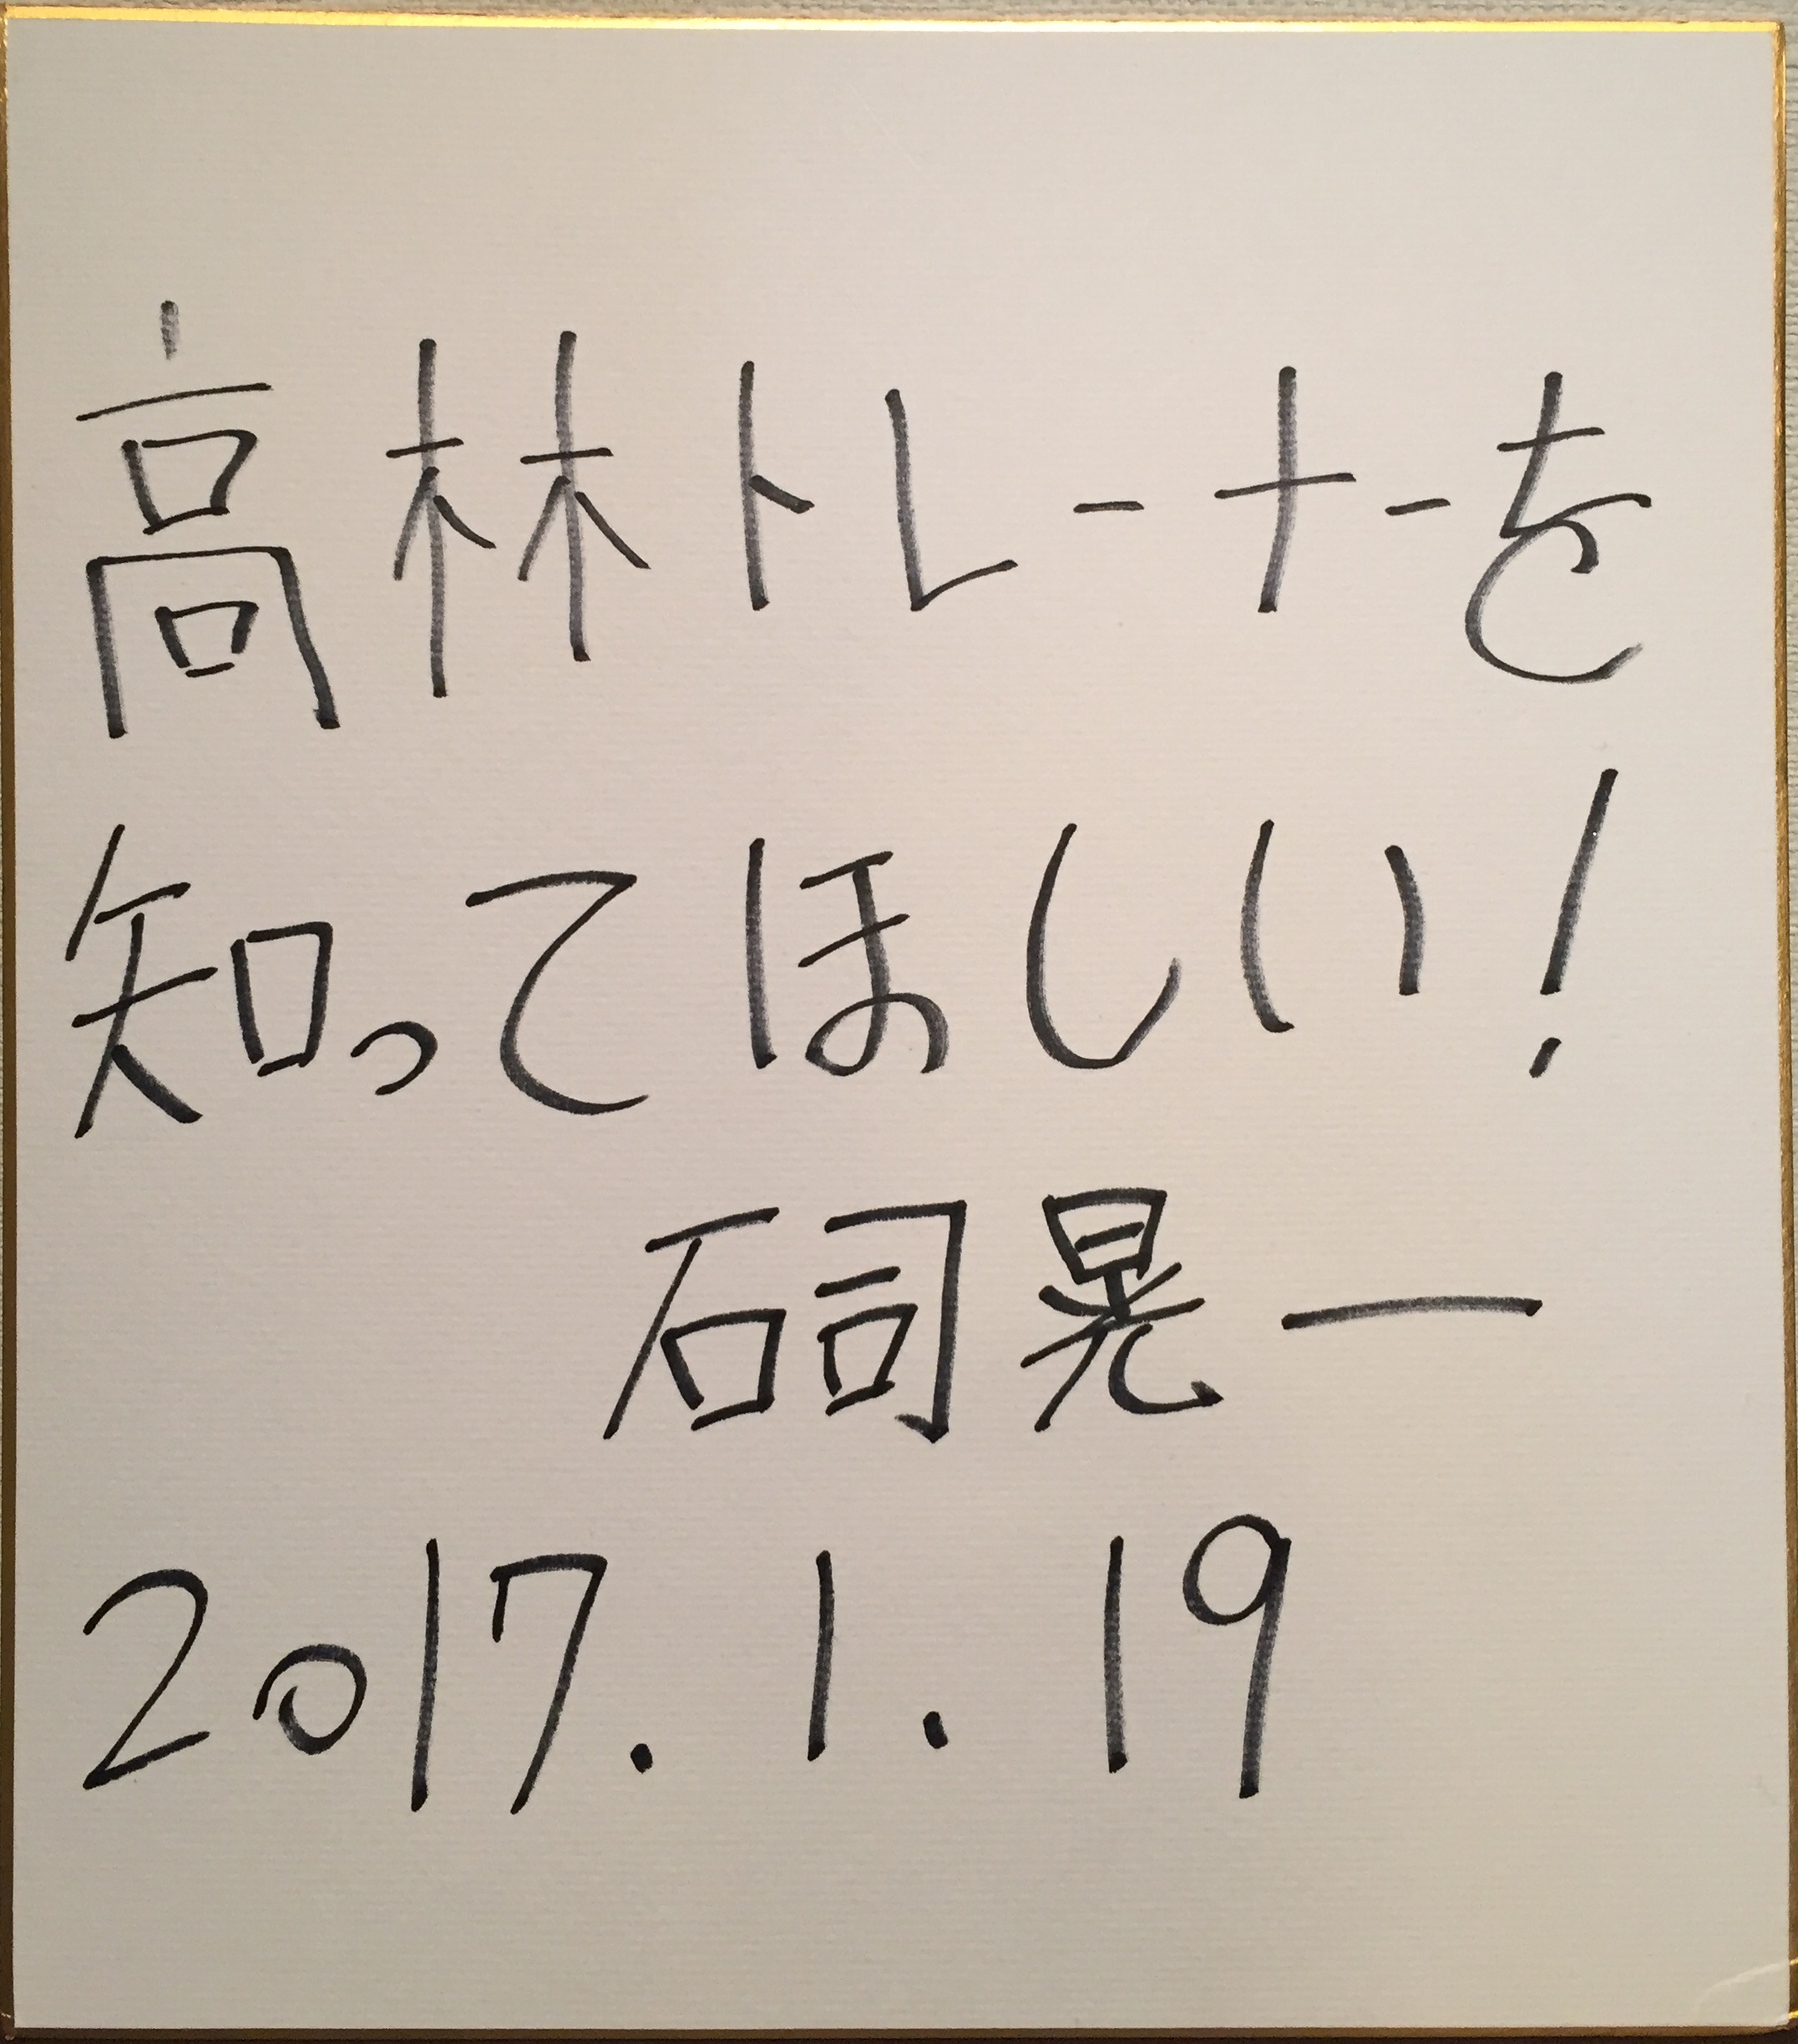 高林トレーナーを
知ってほしい!
石司晃一
2017.1.19